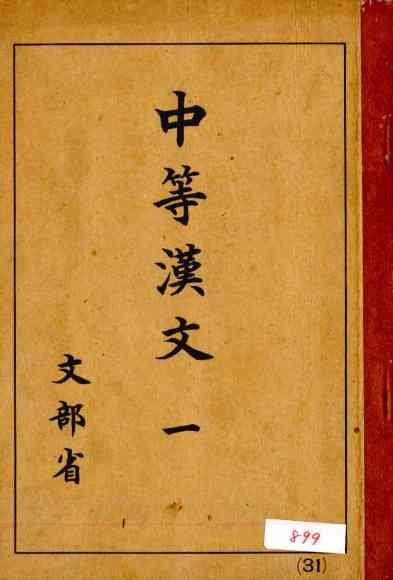 中等漢文 一
文部省
899
(31)